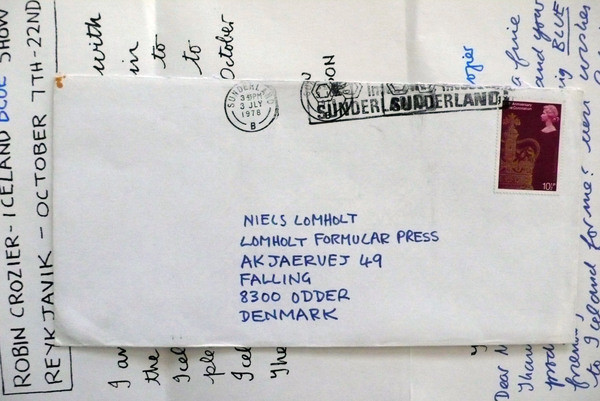 SUNDERLAND
3 JLY
1978
B
SUNDERLAND
10½P
NIELS LOMHOLT
LOMHOLT FORMULAR PRESS
AKJAERVEJ 49
FALLING
8300 ODDER
DENMARK
ROBIN CROZIER - ICELAND BLUE SHOW
REYKJAVIK - OCTOBER 7TH-22ND
with
in
to
to
October
I am
the
Icel
ple
Icel
The
Dear N
Than
prod
friend,
to Iceland for me: were
a fine
and your
BLUE
wishes